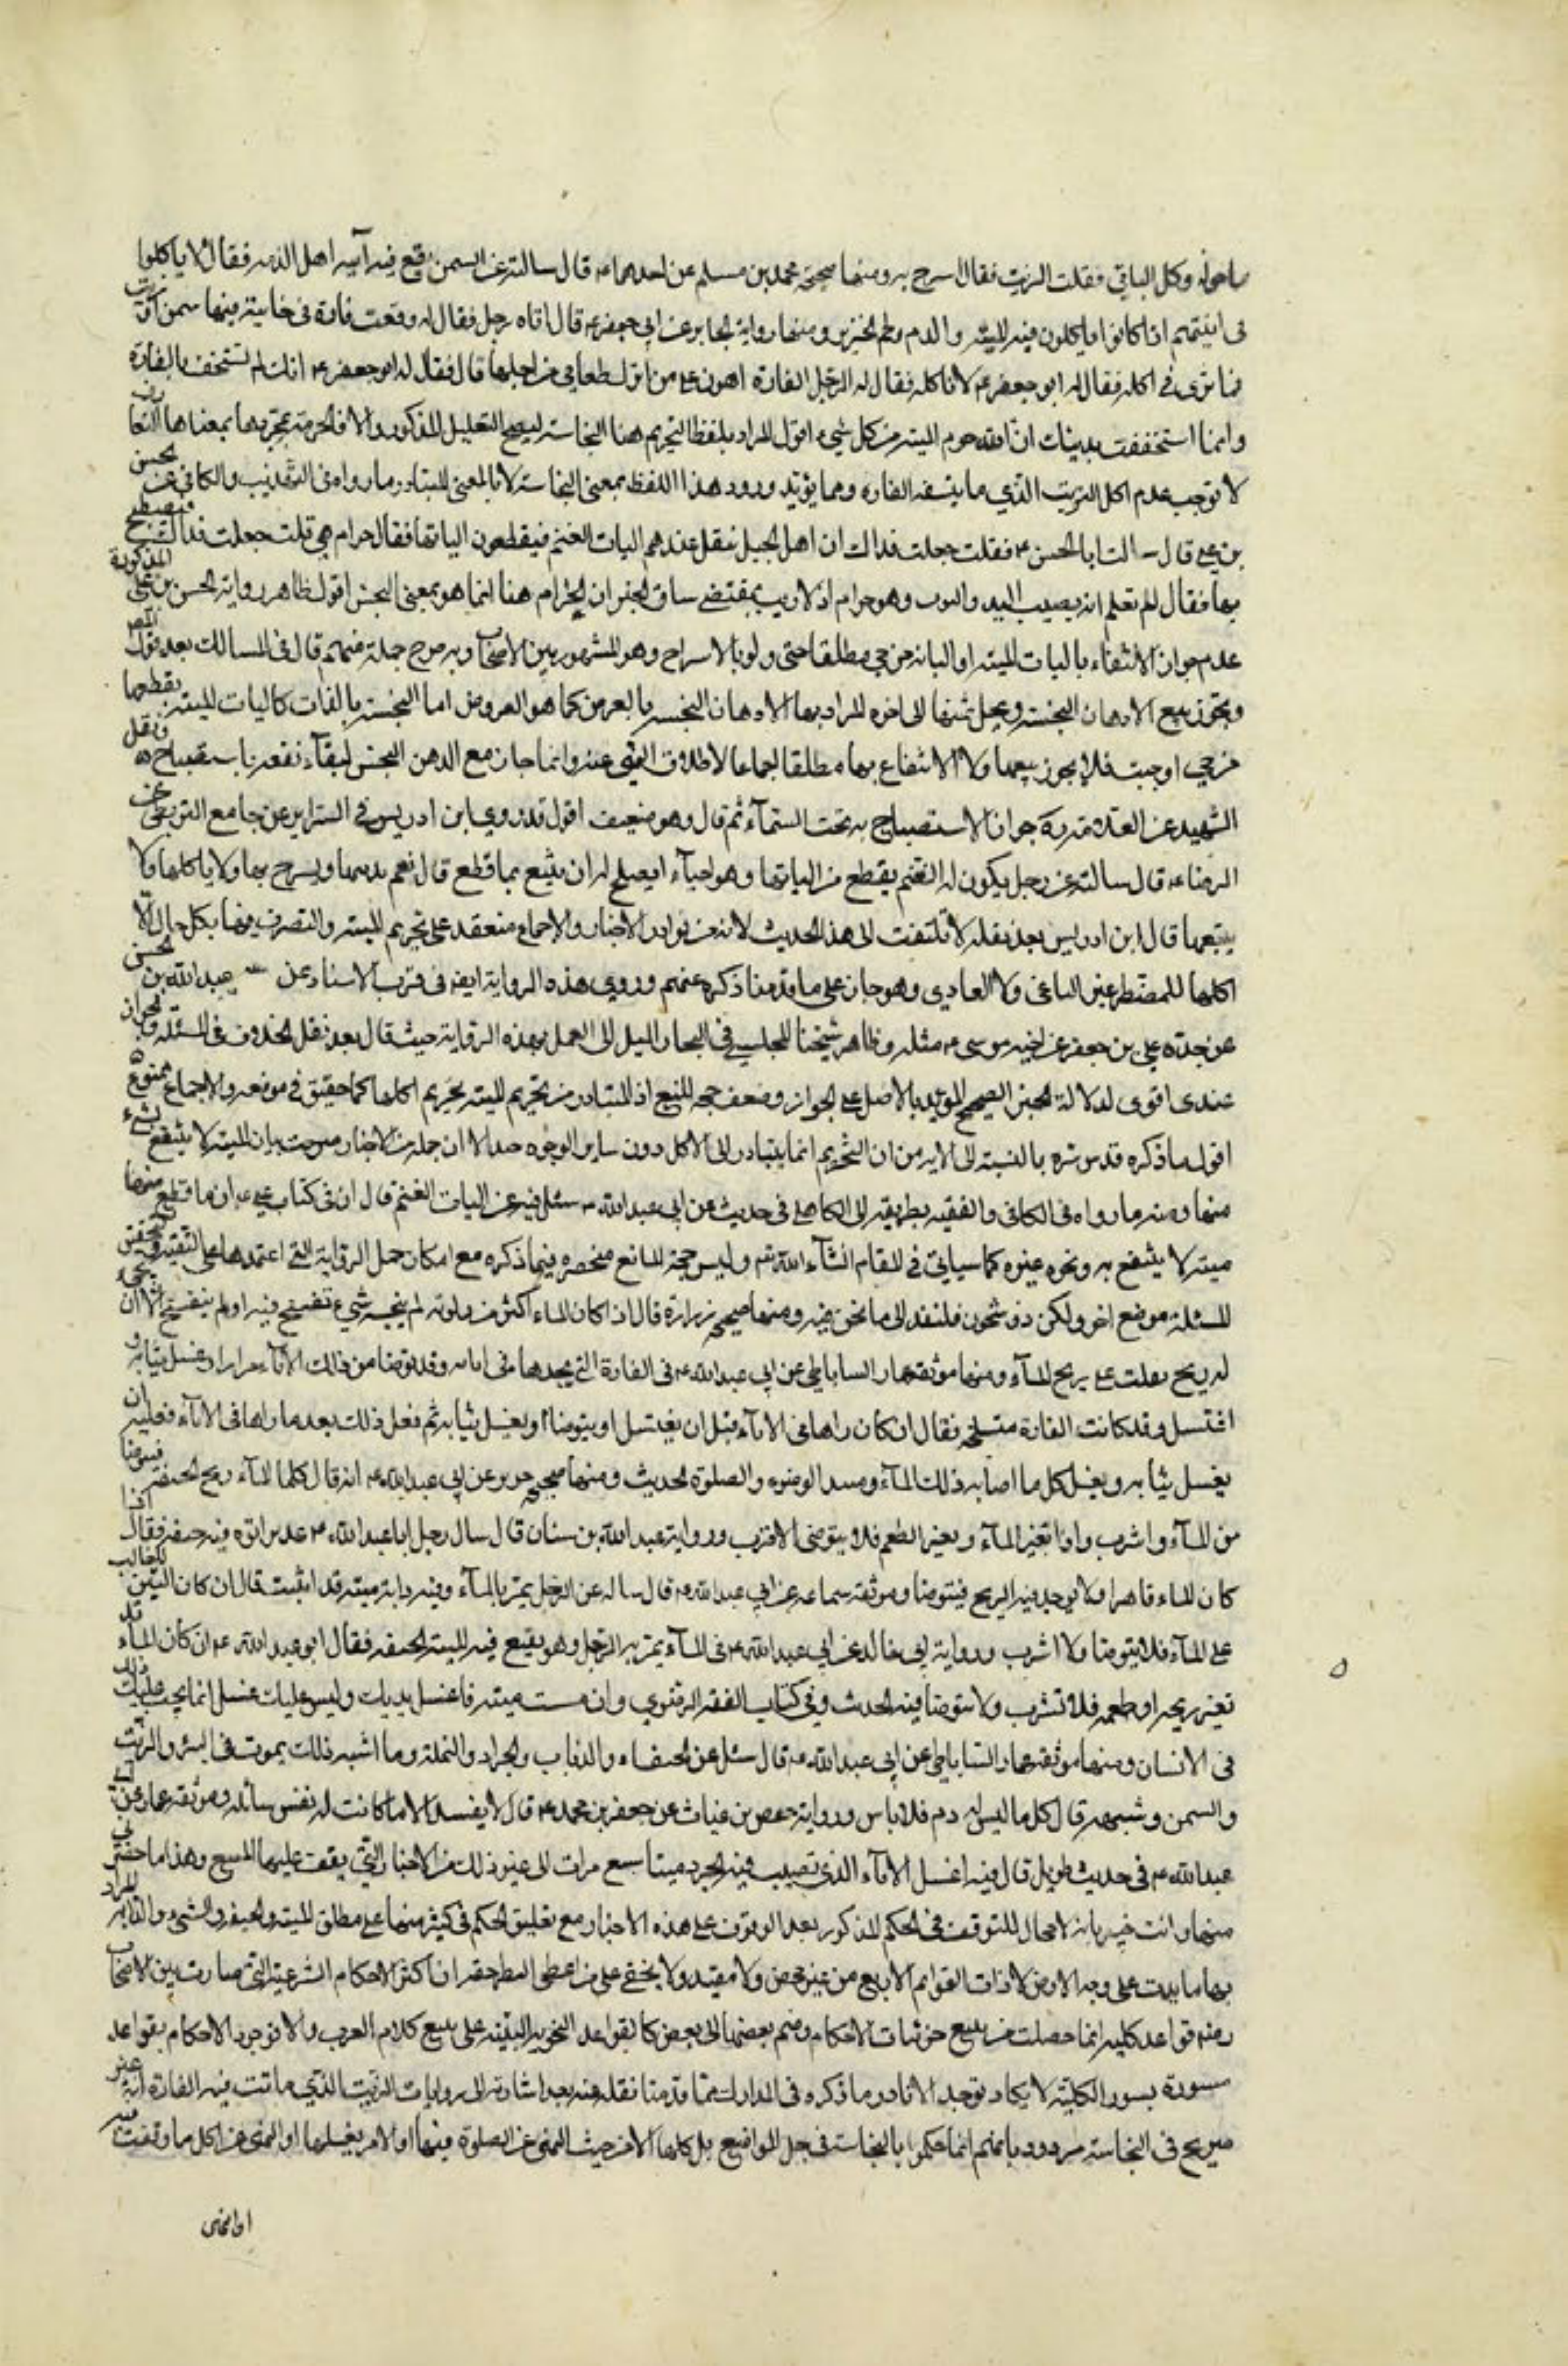 ما حوله وكل الباقي فقلت الزيت فقال اسرج به ومنها صحيحة محمد بن مسلم عن احدهما ع قال سالته عن السمن يقع فيه آنية اهل الذمة فقال لا ياكلوا
فى انيتهم اذا كانوا ياكلون فيه الميتة والدم ولحم الخنزير ومنها رواية الجابر عن ابي جعفر ع قال اتاه رجل فقال له وقعت فارة فى خابية فيها سمن او زيت
فما ترى في اكله فقال له ابو جعفر ع لا تاكله فقال له الرجل الفارة اهون علي من ان اترك طعامي من اجلها قال فقال له ابو جعفر ع انك لم تستخف بالفارة
وانما استخففت بدينك ان الله حرم الميتة من كل شيء اقول المراد بلفظ التحريم هنا النجاسة ليصح التعليل المذكور والا فالحرمة بمجردها بمعناها
لا توجب عدم اكل الزيت الذي ماتت فيه الفارة ومما يؤيد ورود هذا اللفظ بمعنى النجاسة لا بالمعنى المتبادر ما رواه فى التهذيب والكافي عن الحسن
بن علي قال سالت ابا الحسن ع فقلت جعلت فداك ان اهل الجبل تثقل عندهم اليات الغنم فيقطعون الياتها فقال حرام هي قلت جعلت فداك فنصطبح
بها فقال الم تعلم انه يصيب اليد والثوب وهو حرام اذ لا ريب بمقتضى سياق الخبر ان الحرام هنا انما هو بمعنى النجس اقول ظاهر رواية الحسن بن علي المذكورة
عدم جواز الانتفاع باليات الميتة او المبانة من حي مطلقا حتى ولو بالاسراج وهو المشهور بين الاصحاب وبه صرح جملة منهم قال فى المسالك بعد قول المصنف
ويجوز بيع الادهان النجسة ويحل ثمنها الى اخره المراد بها الادهان النجسة بالعرض كما هو المفروض اما النجسة بالذات كاليات الميتة يقطعها
من حي او ميت فلا يجوز بيعها ولا الانتفاع بها مطلقا اجماعا لاطلاق النهي عنه وانما جاز مع الدهن النجس لبقاء نفعه بالاستصباح ونقل
الشهيد عن العلامة ره جواز الاستصباح به تحت السماء ثم قال وهو ضعيف اقول قد روى ابن ادريس في السرائر عن جامع البزنطي عن
الرضا ع قال سالته عن رجل يكون له الغنم يقطع من الياتها وهو احياء ايصلح له ان ينتفع بما قطع قال نعم يذيبها ويسرج بها ولا ياكلها ولا
يبيعها قال ابن ادريس بعد نقله لا تلتفت الى هذا الحديث لانه من نوادر الاخبار والاجماع منعقد على تحريم الميتة والتصرف فيها بكل حال الا
اكلها للمضطر غير الباغي ولا العادي وهو جار على ما قدمنا ذكره عنهم وروي هذه الرواية ايضا فى قرب الاسناد عن عبد الله بن الحسن
عن جده علي بن جعفر عن اخيه موسى ع مثله وظاهر شيخنا المجلسي في البحار الميل الى العمل بهذه الرواية حيث قال بعد نقل الخلاف فى المسئلة والجواز
عندى اقوى لدلالة الخبر الصحيح المؤيد بالاصل على الجواز وضعف حجة المنع اذ المتبادر من تحريم الميتة تحريم اكلها كما حقق في موضعه والاجماع ممنوع
اقول ما ذكره قدس سره بالنسبة الى الاية من ان التحريم انما يتبادر الى الاكل دون ساير الوجوه جيد الا ان جملة من الاخبار صرحت بان الميتة لا ينتفع بشيء
منها ومنه ما رواه فى الكافى والفقيه بطريقه الى الكاهلي فى حديث عن ابى عبد الله ع سئل فيه عن اليات الغنم قال ان فى كتاب علي ع ان ما قطع منها
ميتة لا ينتفع به ونحوه غيره كما سياتي في المقام انشاء الله تعالى وليس حجة المانع منحصرة فيما ذكره مع امكان حمل الرواية التي اعتمدها على التقية وتحقيق
المسئلة موضع اخر ولكن ذو شجون فلنعد الى ما نحن فيه ومنها صحيحة زرارة قال اذا كان الماء اكثر من راوية لم ينجسه شيء تفسخ فيه او لم يتفسخ الا ان يجئ
له ريح تغلب على ريح الماء ومنها موثقة عمار الساباطي عن ابي عبد الله ع فى الفارة التي يجدها فى انائه وقد توضا من ذلك الاناء مرارا وغسل ثيابه و
اغتسل وقد كانت الفارة متسلخة فقال ان كان راها فى الاناء قبل ان يغتسل او يتوضا او يغسل ثيابه ثم فعل ذلك بعد ما راها فى الاناء فعليه ان
يغسل ثيابه ويغسل كل ما اصابه ذلك الماء ويعيد الوضوء والصلوة الحديث ومنها صحيحة حريز عن ابي عبد الله ع انه قال كلما غلب الماء ريح الجيفة فتوضا
من الماء واشرب واذا تغير الماء وتغير الطعم فلا تتوضا ولا تشرب ورواية عبد الله بن سنان قال سال رجل ابا عبد الله ع عن غدير اتوه وفيه جيفة فقال اذا
كان الماء قاهرا ولا يوجد فيه الريح فتوضا وموثقة سماعة عن ابي عبد الله ع قال ساله عن الرجل يمر بالماء وفيه دابة ميتة قد انتنت قال ان كان النتن الغالب
على الماء فلا يتوضا ولا اشرب ورواية ابي خالد عن ابي عبد الله ع فى الماء يمر به الرجل وهو نقيع فيه الميتة الجيفة فقال ابو عبد الله ع ان كان الماء قد
تغير ريحه او طعمه فلا تشرب ولا تتوضا منه الحديث وفي كتاب الفقه الرضوي وان مسست ميتة فاغسل يديك وليس عليك غسل انما يجب عليك ذلك
فى الانسان ومنها موثقة عمار الساباطي عن ابي عبد الله ع قال سئل عن الخنفساء والذباب والجراد والنملة وما اشبه ذلك يموت فى البئر والزيت
والسمن وشبهه قال كل ما ليس له دم فلا باس ورواية حفص بن غياث عن جعفر بن محمد ع قال لا يفسد الماء الا ما كانت له نفس سائلة وموثقة عمار عن ابي
عبد الله ع فى حديث طويل قال فيه اغسل الاناء الذي تصيب فيه الجرذ ميتا سبع مرات الى غير ذلك من الاخبار التي يقف عليها المتتبع وهذا ما حضرني
منها وانت خبير بانه لا مجال للتوقف فى الحكم المذكور بعد الوقوف على هذه الاخبار مع تعليق الحكم في كثير منها على مطلق الميتة والجيفة والشيء والدابة المراد
بها ما يدب على وجه الارض لا ذات القوائم الاربع من غير مخصص ولا مقيد ولا يخفى على من اعطى النظر حقه ان اكثر الاحكام الشرعية التي صارت بين الاصحاب
رضه قواعد كلية انما حصلت من تتبع جزئيات الاحكام وضم بعضها الى بعض كالقواعد النحوية المبنية على تتبع كلام العرب والا فوجود الاحكام بقواعد
مسورة بسور الكلية لا يكاد توجد الا نادرا وما ذكره فى المدارك مما قدمنا نقله عنه بعد اشارته الى روايات الزيت الذي ماتت فيه الفارة انه غير
صريح فى النجاسة مردود بانهم انما حكموا بالنجاسة في جل المواضع بل كلها الا من حيث النهي عن الصلوة فيها او الامر بغسلها او النهي عن اكل ما وقعت فيه
او النهى